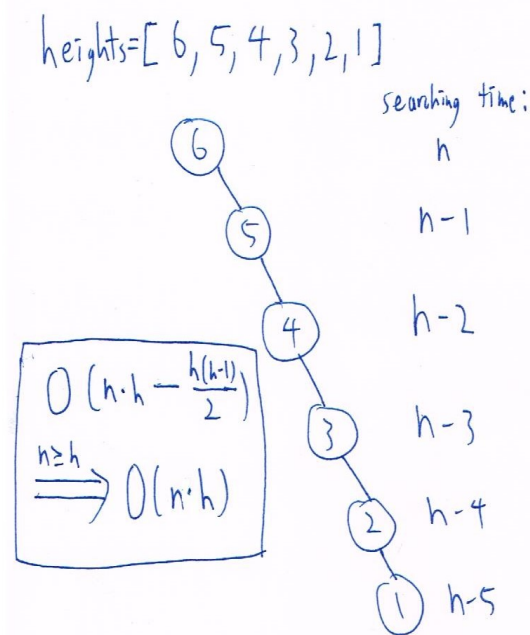 heights=[6,5,4,3,2,1]
searching time:
6
n
5
n-1
4
n-2
3
n-3
2
n-4
1
n-5
O(n·h - h(h-1)/2)
n≥h
⟹ O(n·h)